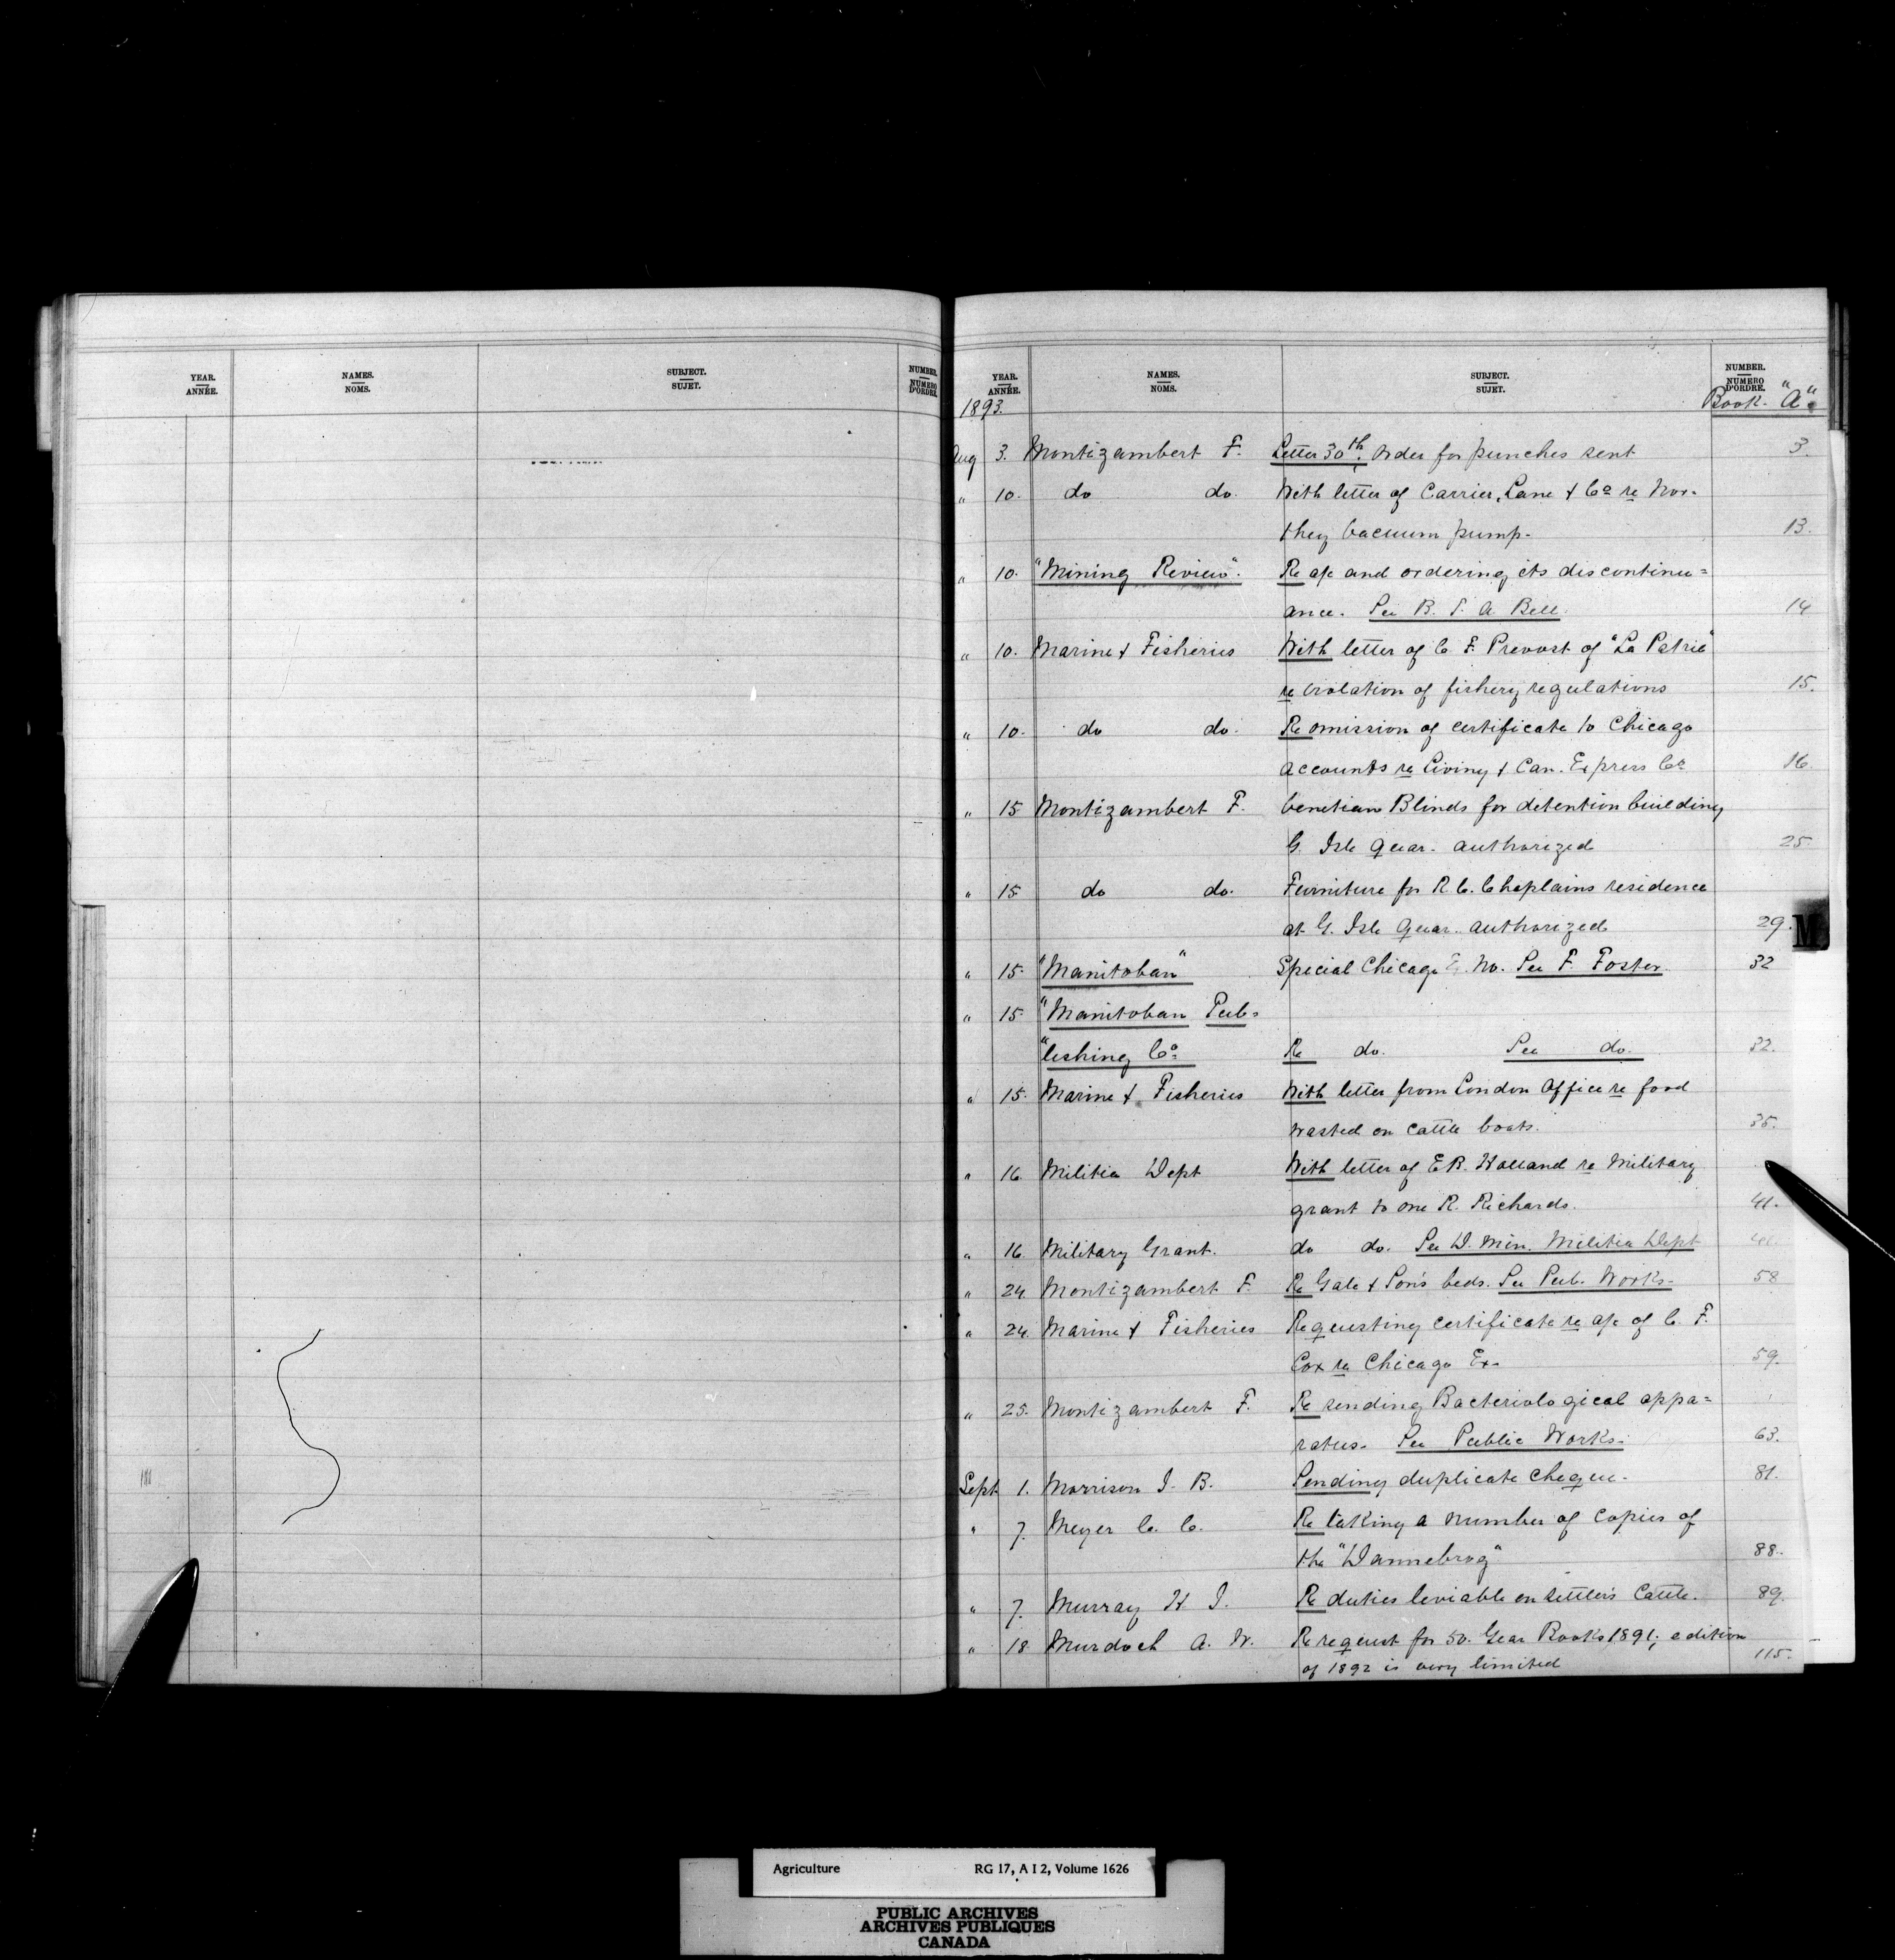 YEAR. NAMES. SUBJECT. NUMBER.
ANNÉE. NOMS. SUJET. NUMERO D'ORDRE.
YEAR. NAMES. SUBJECT. NUMBER.
ANNÉE. NOMS. SUJET. NUMERO D'ORDRE.
1893. Book "A".
Aug 3. Montizambert F. Letter 30th, Order for punches sent 3.
" 10. do do. With letter of Carrier, Lane & Co re Nor-
they Vacuum pump. 13.
" 10. "Mining Review". Re a/c and ordering its discontinu=
ance. See B. T. A. Bell. 14
" 10. Marine & Fisheries With letter of C. F. Prevost of "La Patrie"
re violation of fishery regulations 15.
" 10. do do. Re omission of certificate to Chicago
accounts re Living & Can. Express Co 16.
" 15 Montizambert F. Venetian Blinds for detention building
G. Isle Quar. authorized 25.
" 15 do do. Furniture for R. C. Chaplains residence
at G. Isle Quar. authorized 29.
" 15. "Manitoban" Special Chicago No. See F. Foster. 32
" 15 "Manitoban Pub-
"lishing Co Re do. See do. 32.
" 15. Marine & Fisheries With letter from London Office re food
wasted on cattle boats. 35.
" 16. Militia Dept With letter of E. B. Holland re Military
grant to one R. Richards. 41.
" 16. Military Grant. do do. See D. Min. Militia Dept 41.
" 24. Montizambert F. Re Gale & Son's beds. See Pub. Works- 58
" 24. Marine & Fisheries Requesting certificate re a/c of C. F.
Cox re Chicago Ex- 59.
" 25. Montizambert F. Re sending Bacteriological appa=
ratus. See Public Works. 63.
Sept 1. Morrison J. B. Sending duplicate cheque. 81.
" 7. Meyer C. C. Re taking a number of copies of
the "Dannebrog" 88.
" 7. Murray H. J. Re duties leviable on settlers Cattle. 89.
" 18 Murdoch A. W. Re request for 50. Year Books 1891; edition
of 1892 is very limited 115.
M
Agriculture RG 17, A I 2, Volume 1626
PUBLIC ARCHIVES
ARCHIVES PUBLIQUES
CANADA